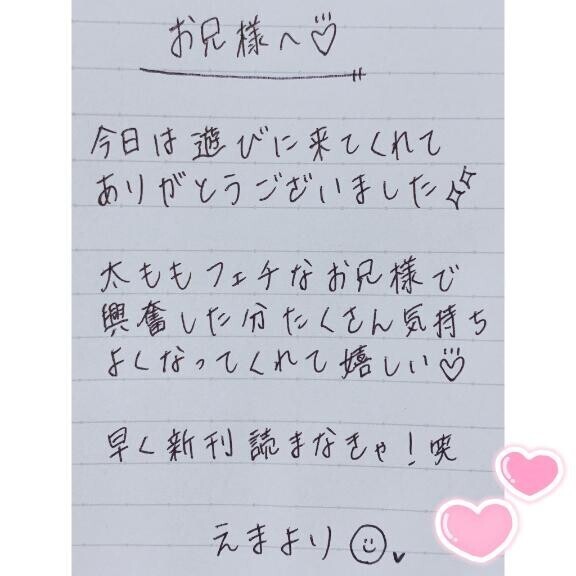 お兄様へ♡
今日は遊びに来てくれて
ありがとうございました✨
太ももフェチなお兄様で
興奮した分たくさん気持ち
よくなってくれて嬉しい♡
早く新刊読まなきゃ!笑
えまより☺♥